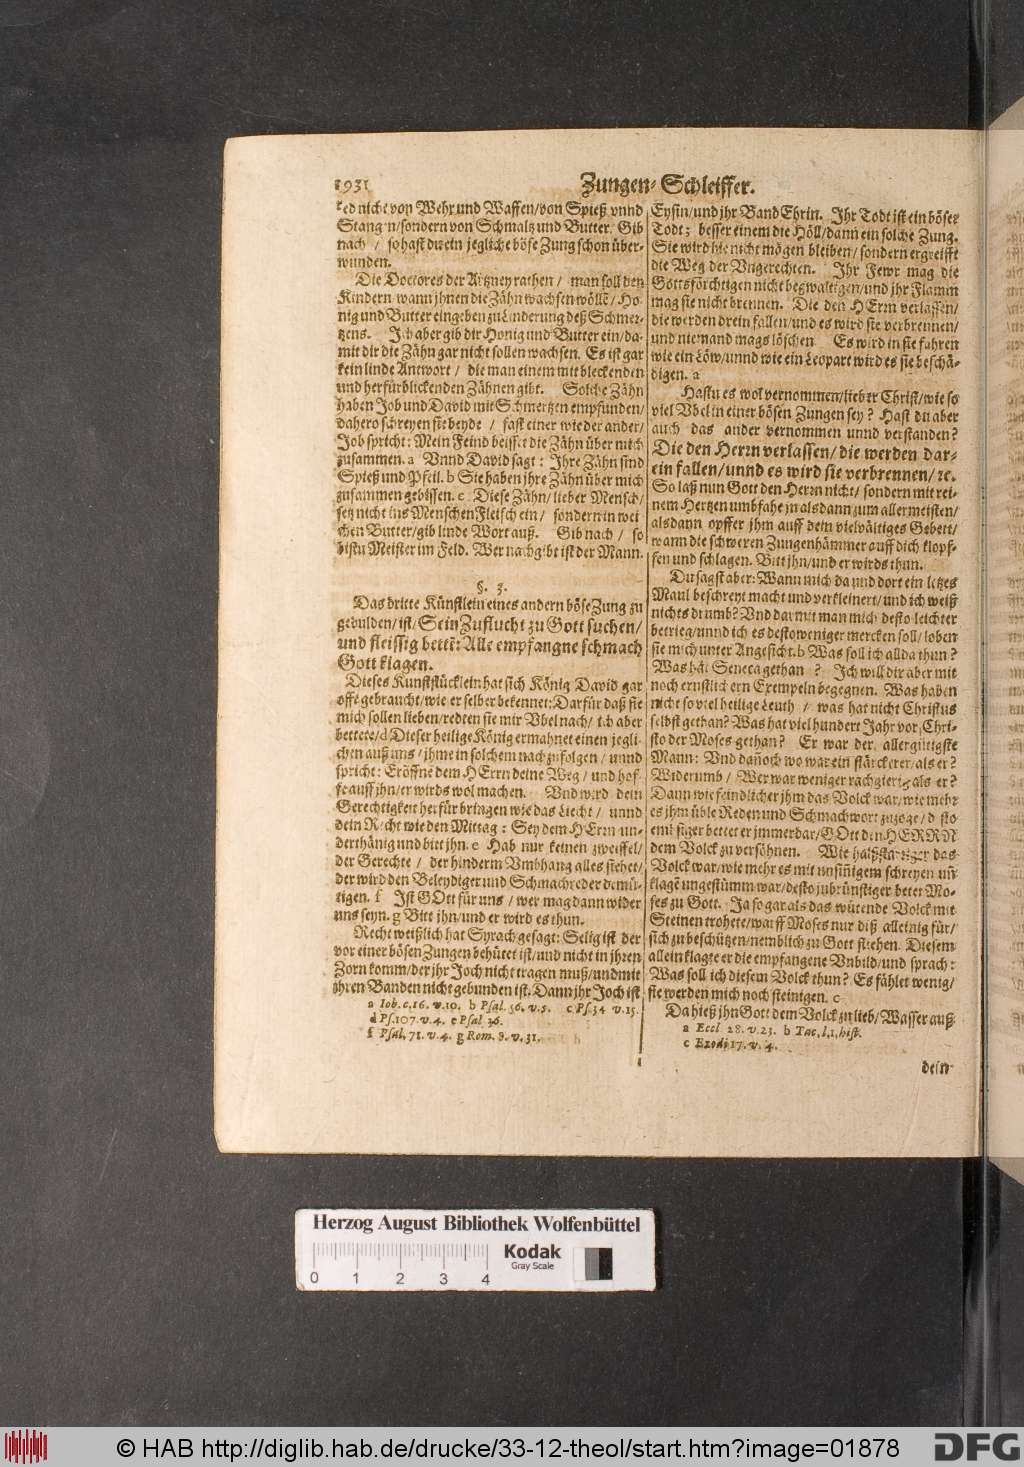 1931
Zungen-Schleiffer.
red nicht von Wehr und Waffen/von Spieß vnnd
Stangen/sondern von Schmaltz und Butter. Gib
nach / so hast du ein jegliche böse Zung schon über-
wunden.
Die Doctores der Artzney rathen / man soll den
Kindern/wann jhnen die Zähn wachsen wöllē/Ho-
nig und Butter eingeben zu Linderung deß Schmer-
tzens. Ich aber gib dir Honig und Butter ein/da-
mit dir die Zähn gar nicht sollen wachsen. Es ist gar
kein linde Antwort / die man einem mit bleckenden
und herfürblickenden Zähnen gibt. Solche Zähn
haben Job und David mit Schmertzen empfunden/
dahero schreyen sie beyde / fast einer wie der ander/
Job spricht: Mein Feind beisset die Zähn über mich
zusammen. a Vnnd David sagt: Ihre Zähn sind
Spieß und Pfeil. b Sie haben jhre Zähn über mich
zusammen gebissen. c Diese Zähn/lieber Mensch/
setz nicht ins Menschen Fleisch ein / sondern in wei
chen Butter/gib linde Wort auß. Gib nach / so
bistu Meister im Feld. Wer nachgibt ist der Mann.
§. 3.
Das dritte Künstlein eines andern böse Zung zu
gedulden/ist/Sein Zuflucht zu Gott suchen/
und fleissig bettē: Alle empfangne schmach
Gott klagen.
Dieses Kunststücklein hat sich König David gar
offt gebraucht/wie er selber bekennet: Darfür daß sie
mich sollen lieben/redten sie mir Vbel nach/ ich aber
bettete/d Dieser heilige König ermahnet einen jegli-
chen auß uns / jhme in solchem nachzufolgen / unnd
spricht: Eröffne dem HErrn deine Weg / und hof-
fe auff jhn/er wirds wol machen. Vnd wird dein
Gerechtigkeit herfür bringen wie das Liecht / unnd
dein Recht wie den Mittag: Sey dem HErrn un-
derthänig und bitt jhn. e Hab nur keinen zweiffel/
der Gerechte / der hinderm Vmbhang alles siehet/
der wird den Beleydiger und Schmachreder demü-
tigen. f Ist GOtt für uns / wer mag dann wider
uns seyn. g Bitt jhn/und er wird es thun.
Recht weißlich hat Syrach gesagt: Selig ist der
vor einer bösen Zungen behütet ist/und nicht in jhren
Zorn komm/der jhr Joch nicht tragen muß/und mit
jhren Banden nicht gebunden ist. Dann jhr Joch ist
a Iob. c. 16. v. 10. b Psal. 56. v. 5. c Ps. 34 v. 15.
d Ps. 107. v. 4. e Psal 36.
f Psal. 71. v. 4. g Rom. 8. v. 31.
Eysin/und jhr Band Ehrin. Ihr Todt ist ein böser
Todt; besser einem die Höll/dann ein solche Zung.
Sie wird hie nicht mögen bleiben/sondern ergreifft
die Weg der Vngerechten. Ihr Fewr mag die
Gottsförchtigen nicht bezwaltigen/und jhr Flamm
mag sie nicht brennen. Die den HErrn verlassen/
die werden drein fallen/und es wird sie verbrennen/
und niemand mags löschen Es wird in sie fahren
wie ein Löw/unnd wie ein Leopart wird es sie beschä-
digen. a
Hastu es wol vernommen/lieber Christ/wie so
viel Vbel in einer bösen Zungen sey? Hast du aber
auch das ander vernommen unnd verstanden?
Die den Herrn verlassen/die werden dar-
ein fallen/unnd es wird sie verbrennen/rc.
So laß nun Gott den Herrn nicht/sondern mit rei-
nem Hertzen umbfahe jn alsdann zum allermeisten/
alsdann opffer jhm auff dein vielvältiges Gebett/
wann die schweren Zungenhämmer auff dich klopf-
fen und schlagen. Bitt jhn/und er wirds thun.
Du sagst aber: Wann mich da und dort ein letzes
Maul beschreyt macht und verkleinert/und ich weiß
nichts drumb? Vnd darmit man mich desto leichter
betrieg/unnd ich es destoweniger mercken soll/loben
sie mich unter Angesicht. b Was soll ich allda thun?
Was hat Seneca gethan? Ich will dir aber mit
noch ernstlichern Exempeln begegnen. Was haben
nicht so viel heilige Leuth / was hat nicht Christus
selbst gethan? Was hat viel hundert Jahr vor Chri-
sto der Moses gethan? Er war der allergütigste
Mann: Vnd dañoch wo war ein stärckerer/als er?
Widerumb / Wer war weniger rachgierig als er?
Dann wie feindlicher jhm das Volck war/wie mehr
es jhm üble Reden und Schmachwort zuzoge/desto
emsiger bettet er jmmerdar/GOtt den HERRN
dem Volck zu versöhnen. Wie halßstarriger das
Volck war/wie mehr es mit unsiñigem schreyen uñ
klagē ungestümm war/desto jnbrünstiger betet Mo-
ses zu Gott. Ja sogar als das wütende Volck mit
Steinen trohete/warff Moses nur diß alleinig für/
sich zu beschützen/nemblich zu Gott fliehen. Diesem
allein klagte er die empfangene Vnbild/und sprach:
Was soll ich diesem Volck thun? Es fählet wenig/
sie werden mich noch steinigen. c
Da hieß jhn Gott dem Volck zu lieb/Wasser auß
a Eccl 28. v. 23. b Tac. l. 1. hist.
c Exodi 17. v. 4.
dem
Herzog August Bibliothek Wolfenbüttel
Kodak
Gray Scale
0 1 2 3 4
© HAB http://diglib.hab.de/drucke/33-12-theol/start.htm?image=01878
DFG